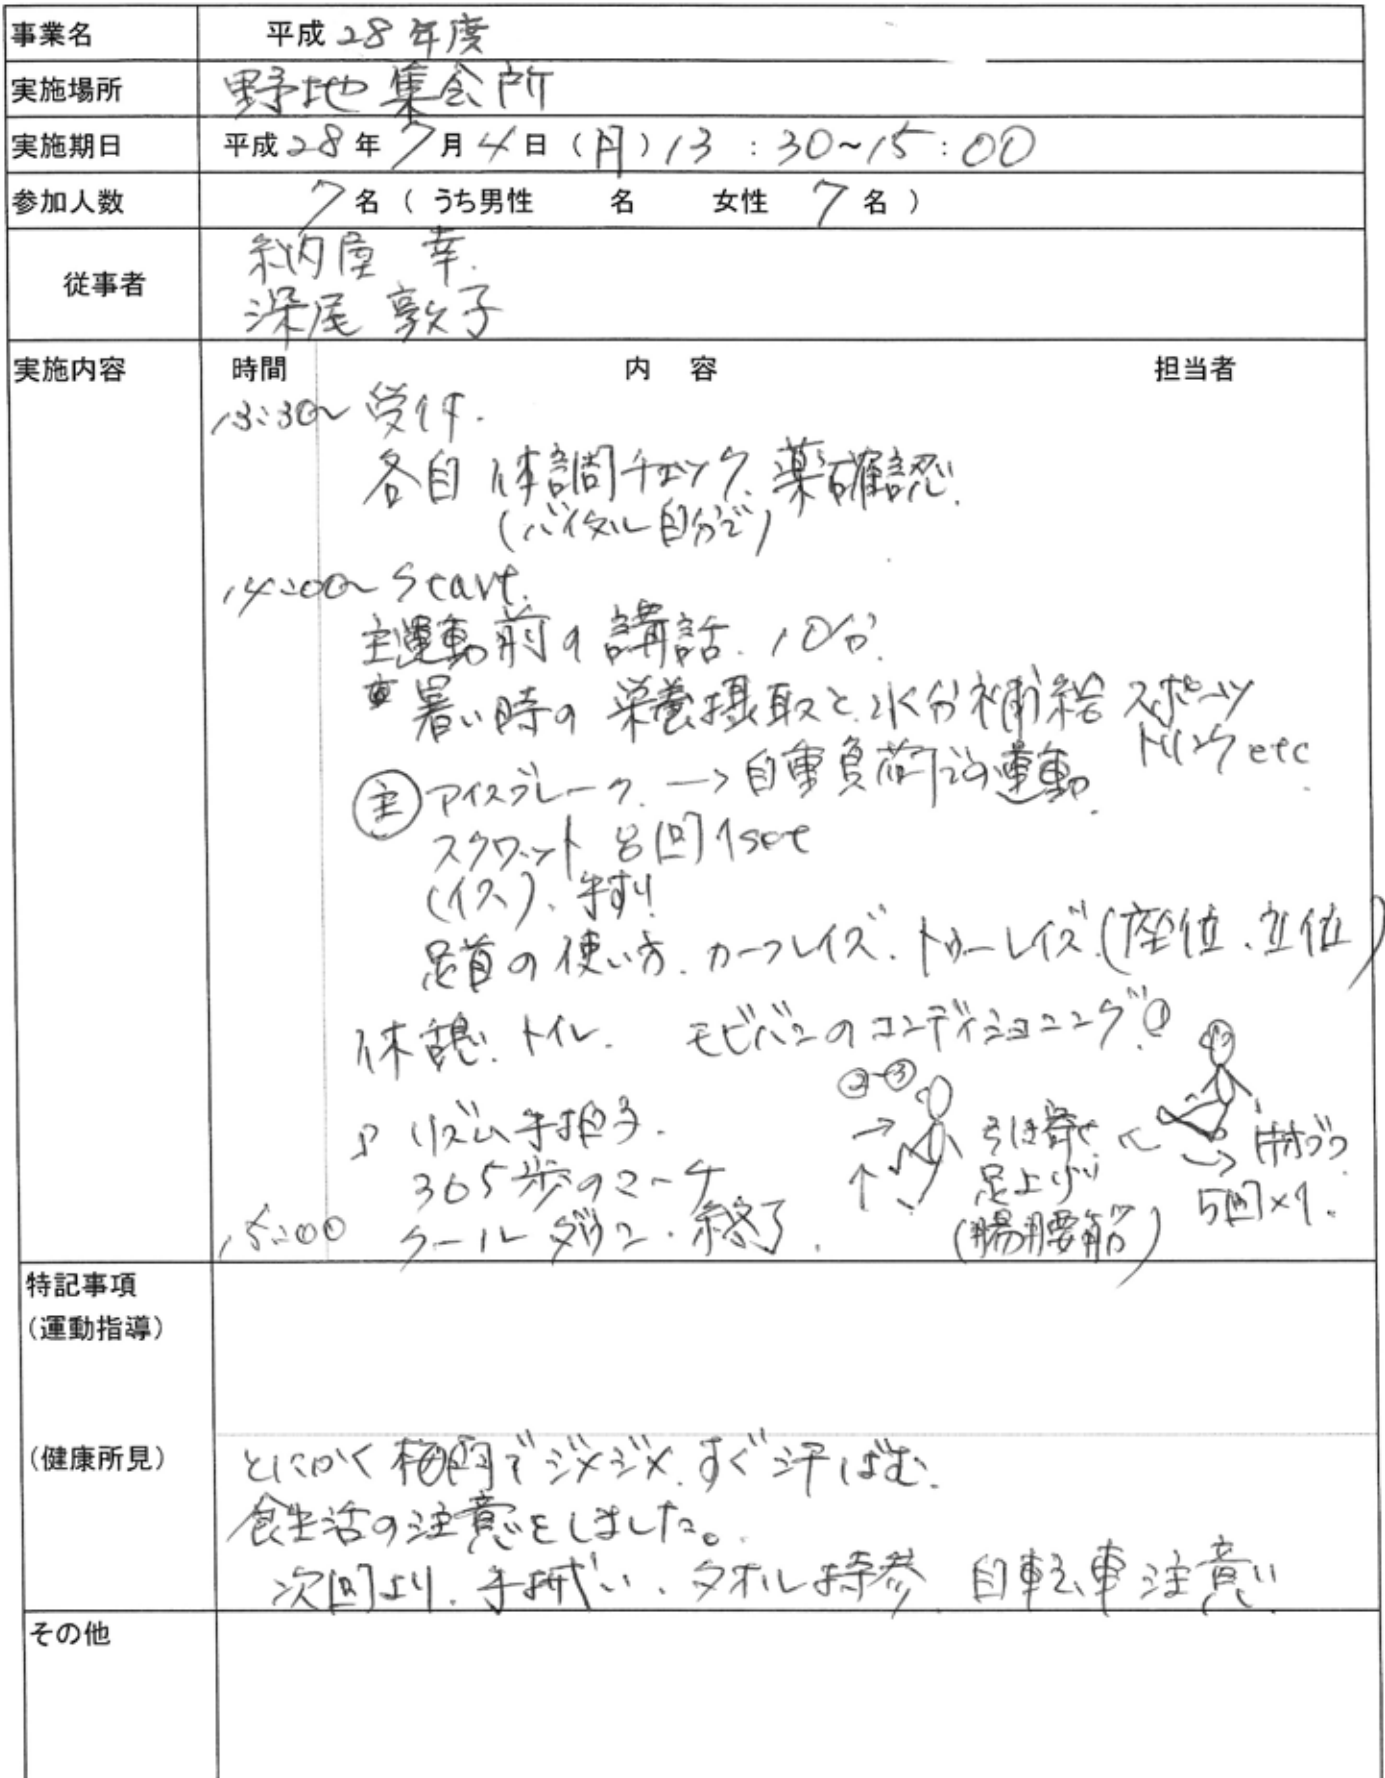 事業名 平成28年度
実施場所 野地集会所
実施期日 平成28年7月4日(月)13:30~15:00
参加人数 7名(うち男性 名 女性 7名)
従事者 納屋 幸
深尾 敦子
実施内容 時間 内容 担当者
13:30~ 受付.
各自体調チェック、薬確認.
(バイタル自分で)
14:00~ Start.
主運動前の講話. 10分.
暑い時の栄養摂取と水分補給 スポーツ
ドリンクetc
主 アイスブレーク. → 自重負荷での運動.
スクワット 8回1set
(イス)、手すり
足首の使い方. カーフレイズ. トゥーレイズ.(座位、立位)
休憩. トイレ. モビバンのコンディショニング①
②-③
♪ リズム手拍子. 引き寄せ ← →
365歩のマーチ 足上げ 5回×1.
15:00 クールダウン. 終了. (腸腰筋)
特記事項
(運動指導)
(健康所見) とにかく梅雨でジメジメ.すぐ汗ばむ.
食生活の注意をしました。
次回より、手拭い、タオル持参 自転車注意
その他